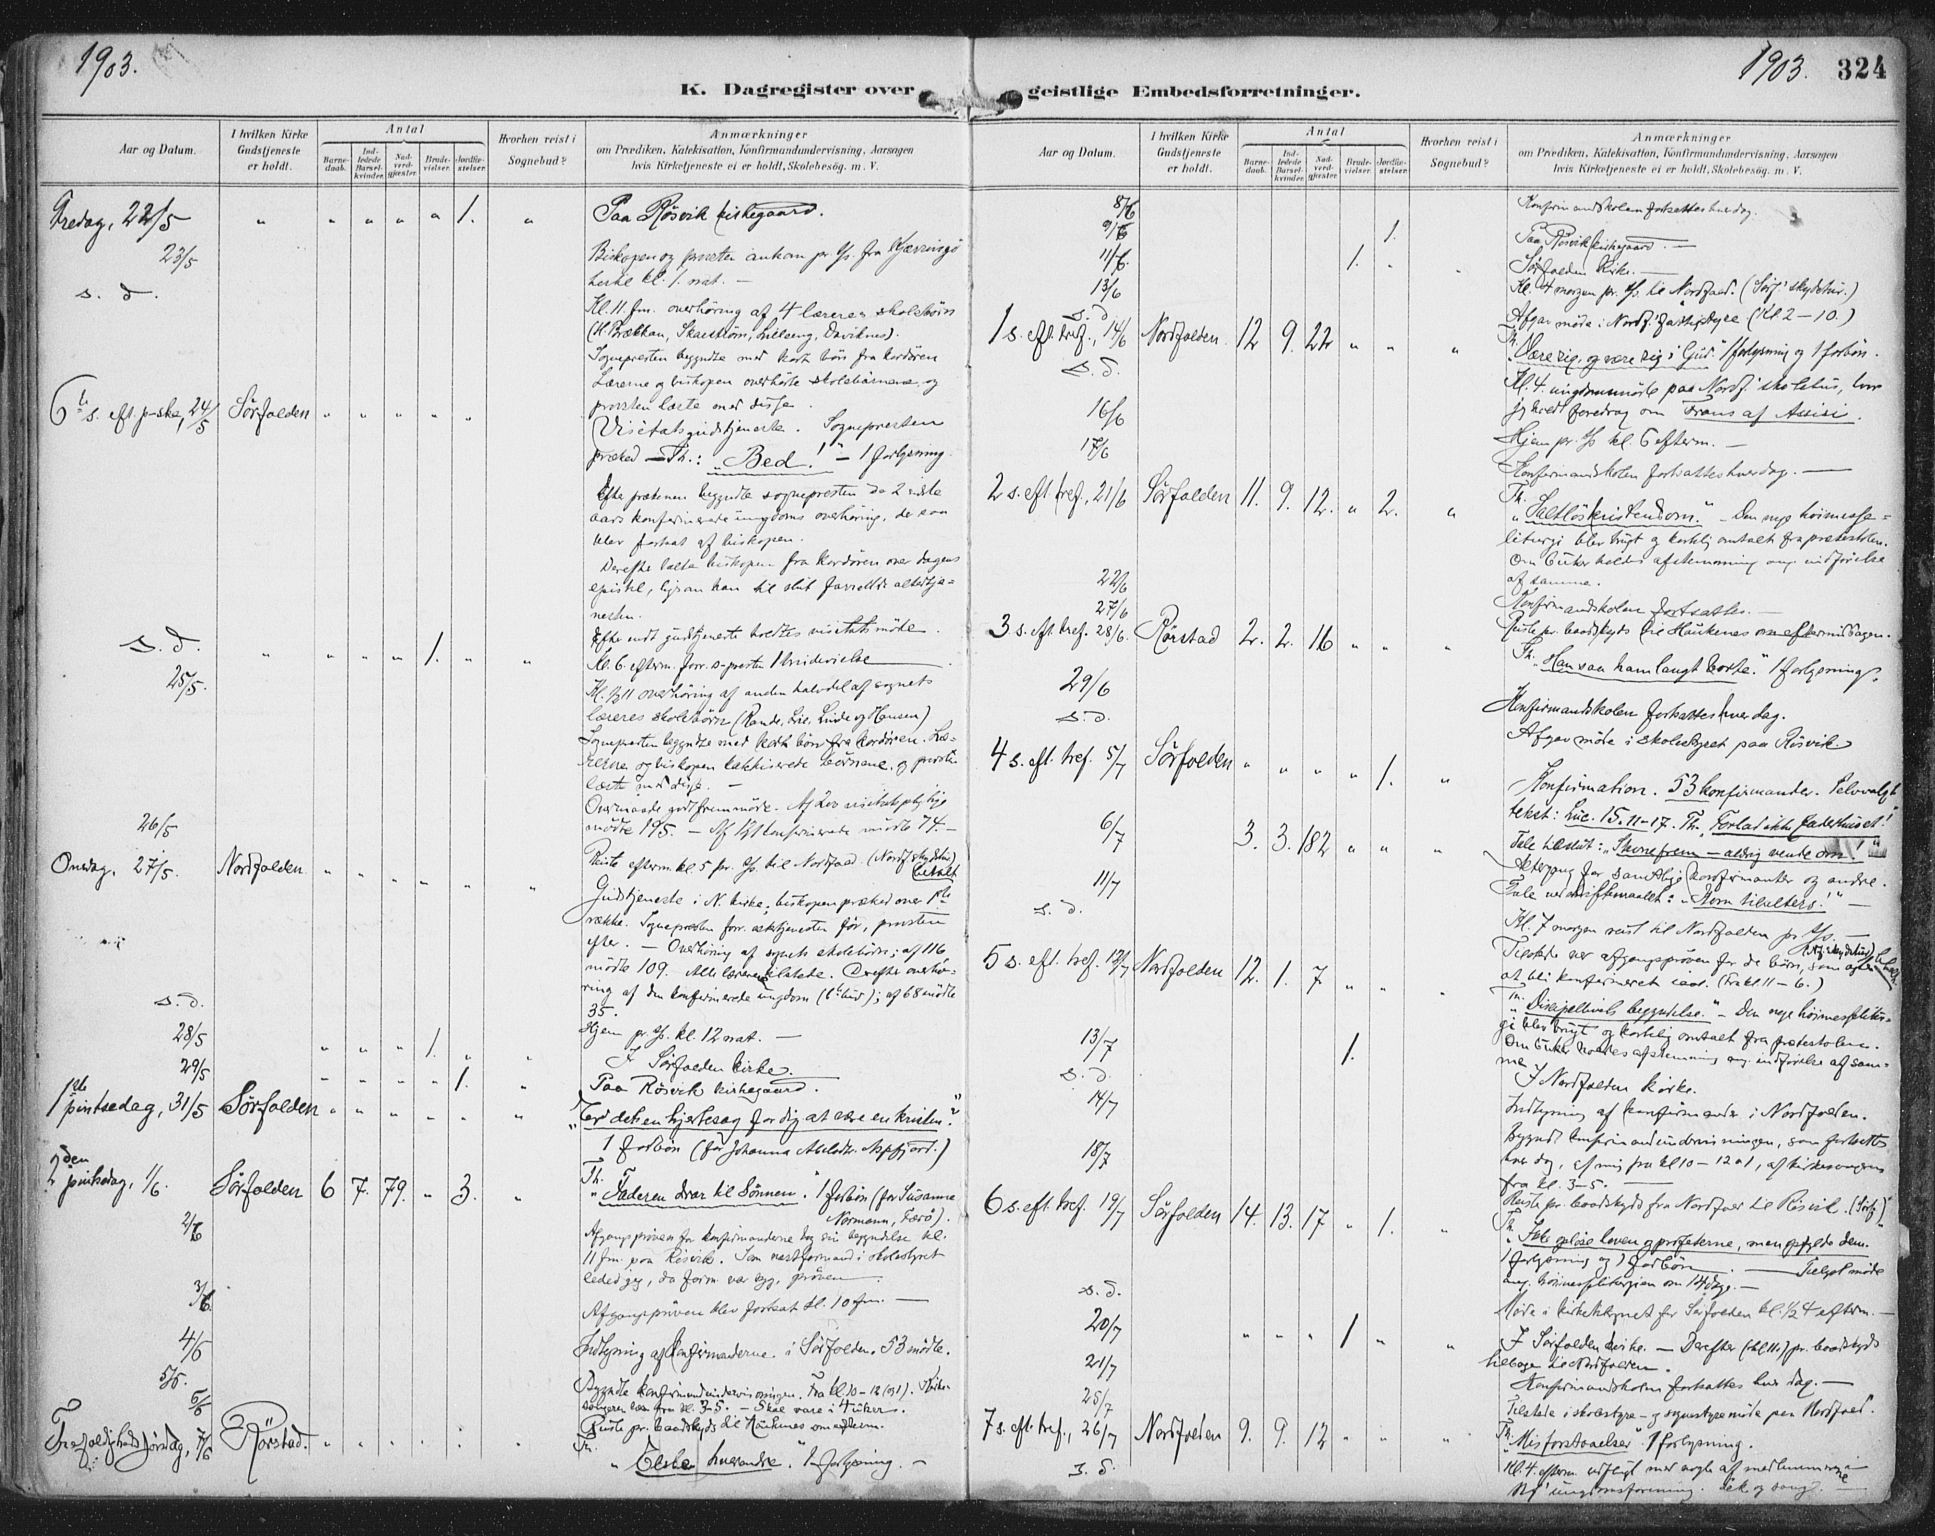 1903.
1903. 324
K. Dagregister over geistlige Embedsforretninger.
Aar og Datum.
I hvilken Kirke Gudstjeneste er holdt.
Antal
Barnedaab.
Indledede Barselkvinder.
Nadverdgjæster.
Brudevielser.
Jordfæstelser.
Hvorhen reist i Sognebud?
Anmærkninger
om Prædiken, Katekisation, Konfirmandundervisning, Aarsagen
hvis Kirketjeneste ei er holdt, Skolebesøg. m. V.
Fredag, 22/5 " " " " " 1. " Paa Rösvik kirkegaard.
23/5 Biskopen og provsten ankom pr. fra Kjerringö
hertil kl. 1. nat. —
s. d. Kl. 11 fm. overhöring af 4 læreres skolebörn
Sognepresten begyndte med bön fra kordören
Lærerne og biskopen overhörte skolebörnene og
provsten læste med disse.
6te s. eft. p-ske, 24/5 Sörfolden " " " " "
Visitatsgudstjeneste. Sognepresten
præked — Th.: "Bed!" — 1 forlysning.
Efter prækenen begyndte sognepresten de 2 sidste
aars konfirmerede ungdoms overhöring, der saa
blev fortsat af biskopen.
Derefter talte biskopen fra kordören over dagens
epistel, ligesom han til slut forrettede altertje-
nesten.
Efter endt gudstjeneste holdtes visitatsmöte.
s. d. " " " " 1. " " Kl. 6 efterm. forr. s-presten 1 brudevielse
25/5. Kl. 11 overhöring af anden halvdel af sognets
læreres skolebörn (Rande, Lie, Linde og Hansen)
Sognepresten begyndte med bön fra kordören. Læ-
rerne og biskopen börnene og provsten
læste med disse. —
Overmaade godt fremmöte. Af 200 visitatspligtige
mödte 195. — Af konfirmerede mödte 74. —
26/5 Reiste efterm. kl 5 pr. til Nordfold. (Nordf. skydstur)
betalt
Onsdag, 27/5. Nordfolden " " " " " "
Gudstjeneste i N. kirke; biskopen præked over 1ste
række. Sognepresten forr. altertjenesten för, provsten
efter. — Overhöring af sognets skolebörn; af 116
mödte 109. Alle lærere tilstede. Derefter overhö-
ring af den konfirmerede ungdom; af 68 mödte
35.
s. d. Hjem pr. kl. 12 nat. —
28/5 " " " 1. " " I Sörfolden kirke.
29/5 " " " " 1. " Paa Rösvik kirkegaard.
1ste pintsedag, 31/5 Sörfolden " " " " " "
"Er det en hjertesag for dig at være en kristen?"
1 forbön (for Johanna)
2den pintsedag, 1/6. Sörfolden 6 7. 79. " 3. "
Th. "Faderen drar til Sönnen." 1 forbön (for Susanna
Normann, Færö).
2/6 Afgangspröven for konfirmanderne tog sin begyndelse kl.
11 fm. paa Rösvik. Som næstformand i skolestyret
leded jeg, da form. var syg, pröven.
3/6 Afgangspröven blev fortsat kl. 10 fm. —
4/6 Indlysning af konfirmanderne i Sörfolden. 53 mödte.
5/6. Begyndte konfirmandundervisningen. Fra kl. 10 – 12 (og 1). Kirke-
sangeren fra kl. 3–5. — Skal vare i 4 uker.
6/6 Reiste pr. baadskyds til Haukenes om efterm.
Trefoldighedssöndag, 7/6 Rörstad. " " " " " " Th. "Elske hverandre." 1 forlysning. —
Aar og Datum.
I hvilken Kirke Gudstjeneste er holdt.
Antal
Barnedaab.
Indledede Barselkvinder.
Nadverdgjæster.
Brudevielser.
Jordfæstelser.
Hvorhen reist i Sognebud?
Anmærkninger
om Prædiken, Katekisation, Konfirmandundervisning, Aarsagen
hvis Kirketjeneste ei er holdt, Skolebesøg. m. V.
8/6 Konfirmandskolen fortsattes hverdag.
9/6 1. Paa Rösvik kirkegaard. —
11/6. 1. " " Sörfolden Kirke. —
13/6 Kl. 4 morgen pr. til Nordfold. (Sörf. skydstur.)
s. d. Afgav möde i Nordf. fattigstyre (kl 2 – 10.)
1 s. eft. tref., 14/6 Nordfolden. 12 9. 22 " " " Th. "Lære sig og være sig i Gud." 1 forlysning og 1 forbön.
s. d. Kl. 4. ungdomsmöte paa Nordf. skolehus, hvor
jeg holdt foredrag om Frans af Assisi.
16/6 Hjem pr. kl 6 efterm. —
17/6 Konfirmandskolen fortsattes hverdag. —
2 s. eft tref., 21/6 Sörfolden 11. 9. 12. " 2. " Th.
"Saltlös kristendom." — Den nye höimesse-
liturgi blev brugt og kortelig omtalt fra prækestolen.
Om 6 uker holdes afstemning ang. indförelse
af samme.
22/6 Konfirmandskolen fortsattes. —
27/6 Reiste pr. baadskyds til Haukenes om eftermiddagen.
3. s. eft. tref. 28/6. Rörstad 2. 2. 16 " " " Th. "Han saa ham langt borte." 1 forlysning.
29/6 Konfirmandskolen fortsattes hver dag.
s. d. Afgav möde i skolestyret paa Rösvik
4 s. eft. tref. 5/7 Sörfolden " " " " 1. "
Konfirmation. 53 konfirmander. Selvvalgt
tekst: Luc. 15. 11–17. Th. "Forlad ikke faderhuset!"
Tale tilslut: "Skrid frem — aldrig vende om!"
6/7 3. 3. 182 " " " Altergang for samtlige konfirmanter og andre.
Tale ved skriftemaalet: "Kom til alters!" —
11/7 Kl. 7 morgen reist til Nordfolden pr. —
s. d. Tilstede ved afgangspröven for de börn, som agter
at bli konfirmeret iaar. (Fra kl. 11 – 6.)
5 s. eft. tref. 12/7 Nordfolden 12. 1. 7 " " " Th.
"Discipellivets begyndelse." — Den nye höimesselitur-
gi blev brugt og kortelig omtalt fra prækestolen.
Om 6 uker holdes afstemning ang. indförelse af sam-
me.
13/7 1. I Nordfolden kirke.
s. d. Indlysning af konfirmander i Nordfolden.
14/7 Begyndt konfirmandundervisningen, som fortsattes
hver dag, af mig fra kl 10 – 12 a 1, af kirkesangeren
fra kl. 3–5. —
18/7 Reiste pr. baadskyds fra Nordfold til Rösvik. (Sörf.)
6 s. eft. tref. 19/7 Sörfolden 14. 13. 17 " 1. " Th.
"Ikke oplöse loven og profeterne, men opfylde dem."
1 forlysning og 1 forbön. —
ang. höimesseliturgien om 14 dage. —
s. d. Möde i kirketilsynet for Sörfolden kl. 1/2 4 efterm. —
20/7 " " " 1 " " I Sörfolden kirke. — Derefter (kl. 11) pr. baadskyds
tilbage til Nordfolden.
21/7 Konfirmandskolen fortsattes hver dag. —
25/7 Tilstede i skolestyre- og sognestyremöde paa Nordfold.
7 s. eft. tref., 26/7 Nordfolden 9. 9. 12 " " " Th. "Misforstaaelser". 1 forlysning.
s. d. Kl. 4. efterm. udflugt med nogle af medlemmerne i
Nf. ungdomsforening. Lek og sang. —